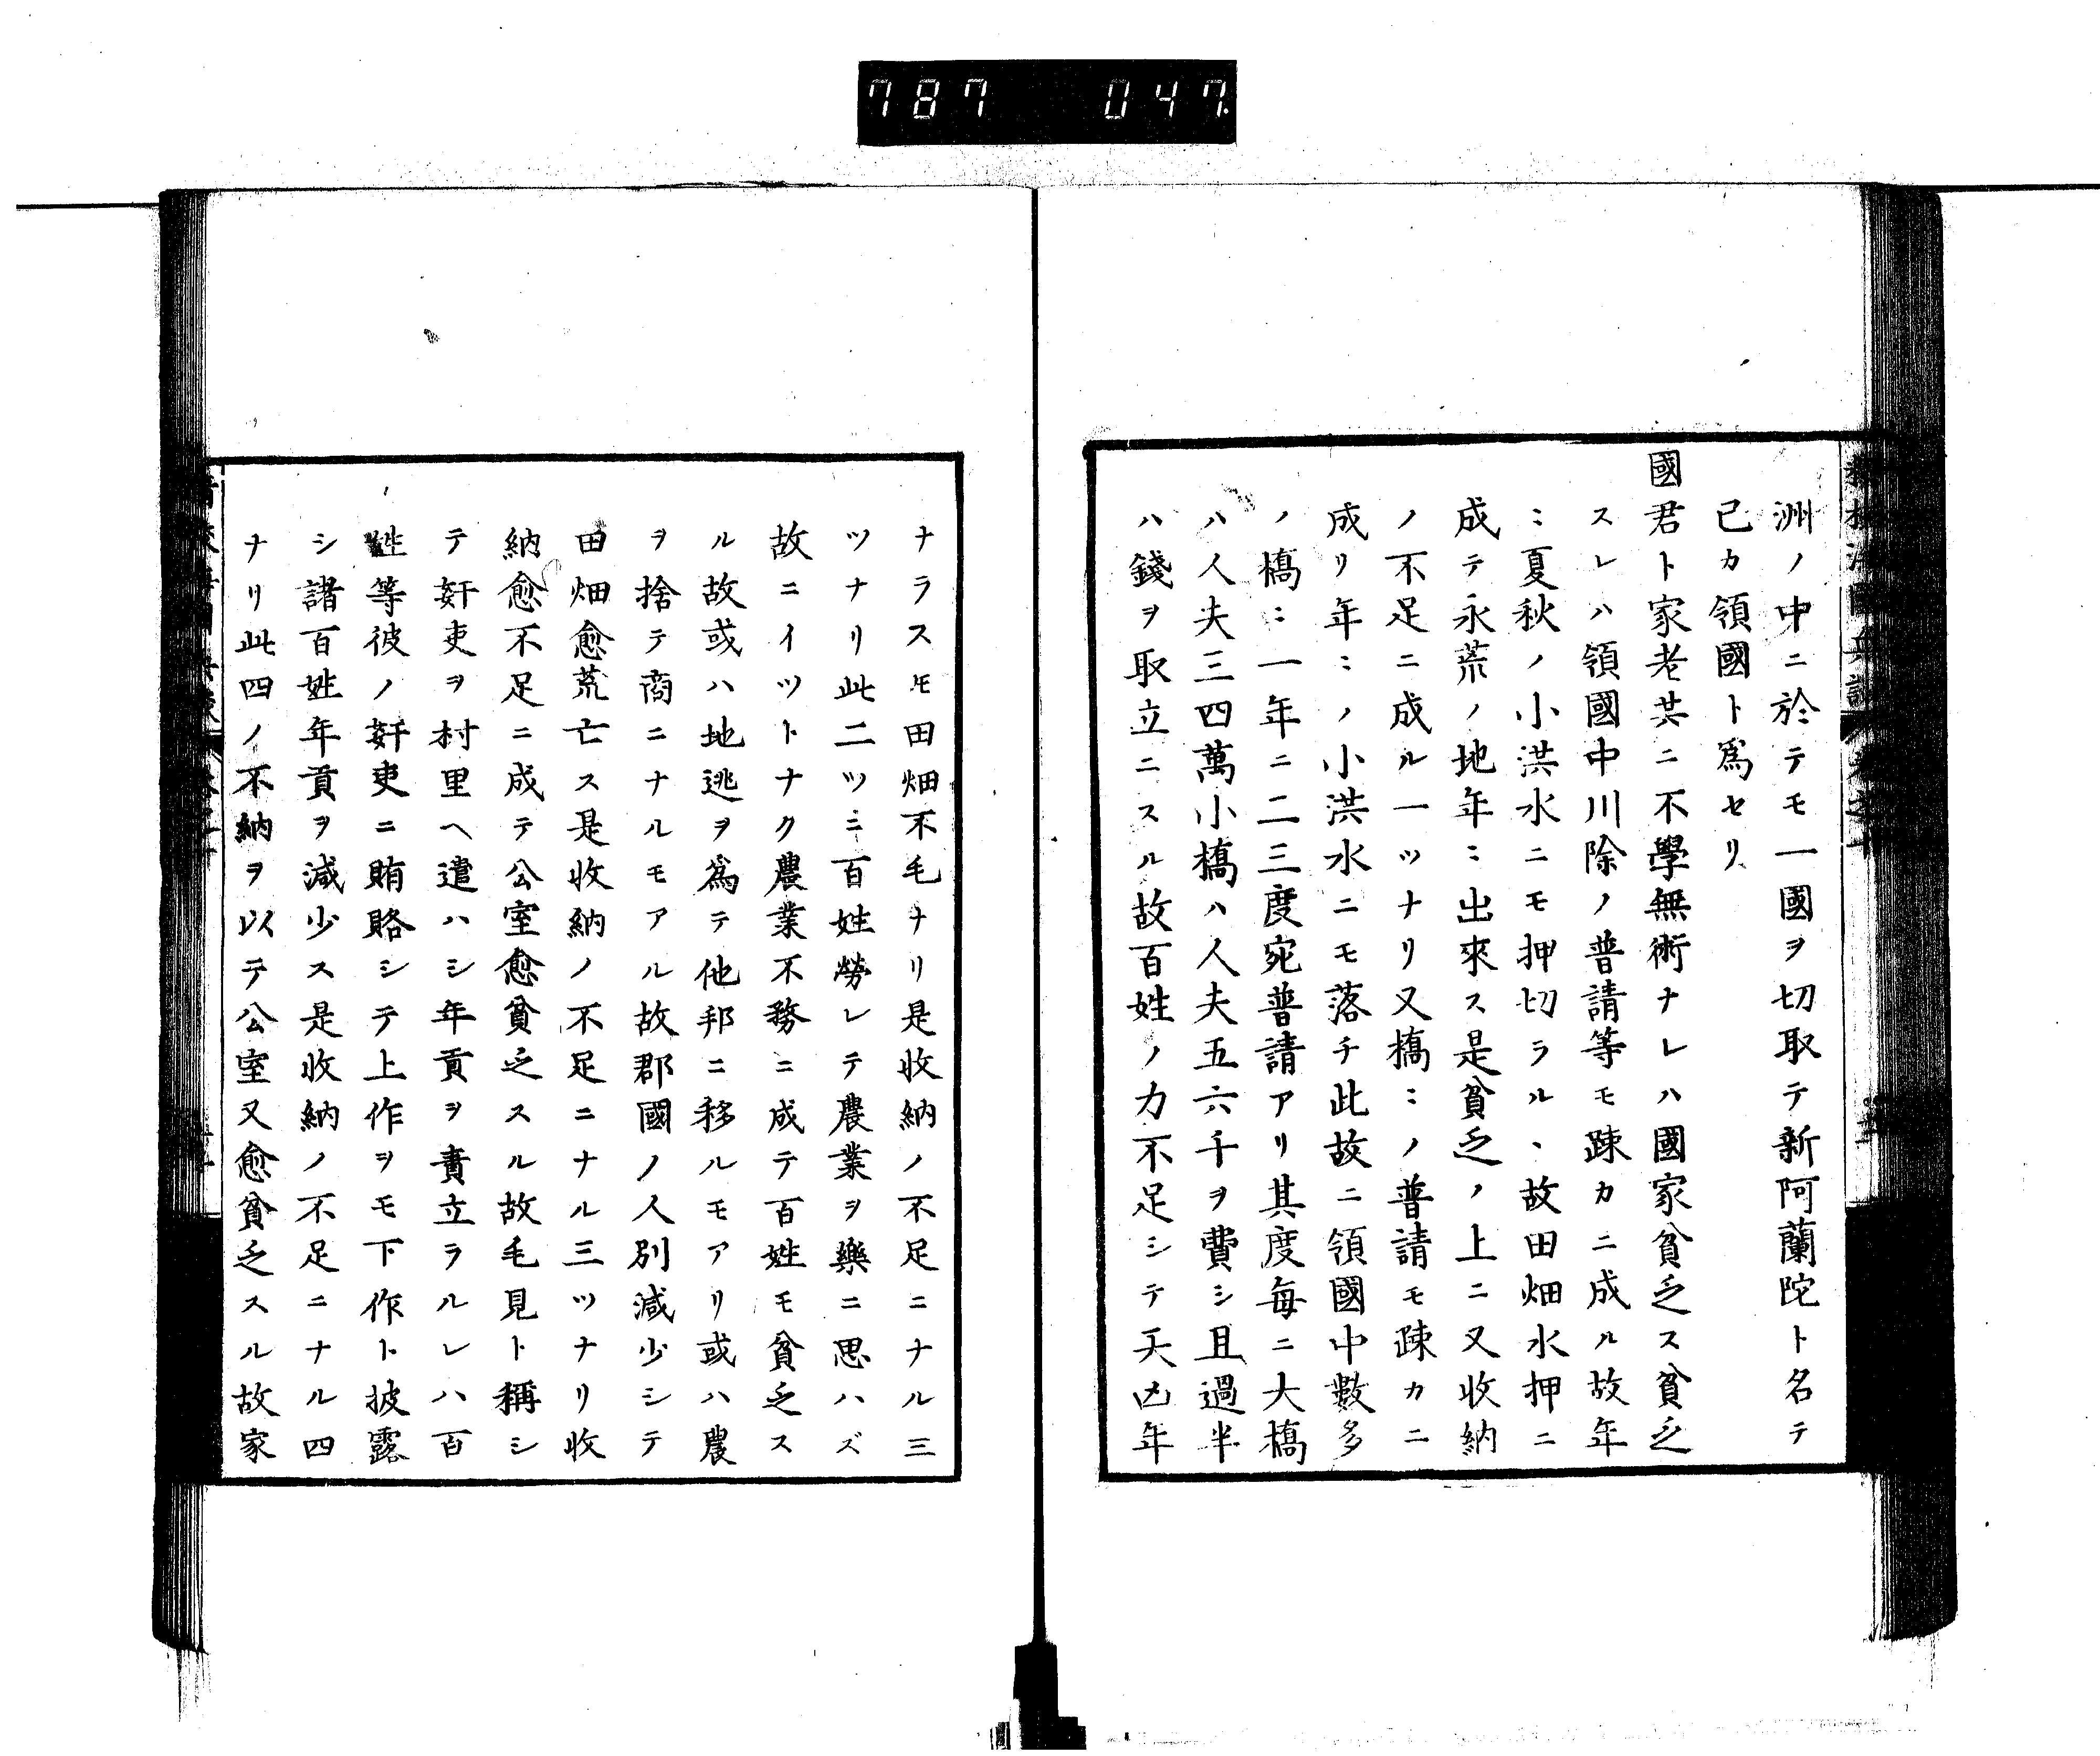 787 047
洲ノ中ニ於テモ一國ヲ切取テ新阿蘭陀ト名テ
己カ領國ト爲セリ
國君ト家老共ニ不學無術ナレハ國家貧乏ス貧乏
スレハ領國中川除ノ普請等モ踈カニ成ル故年
ニ夏秋ノ小洪水ニモ押切ラルヽ故田畑水押ニ
成テ永荒ノ地年ニ出來ス是貧乏ノ上ニ又收納
ノ不足ニ成ル一ツナリ又橋ミノ普請モ踈カニ
成リ年ニノ小洪水ニモ落チ此故ニ領國中數多
ノ橋ニ一年ニ二三度宛普請アリ其度毎ニ大橋
ハ人夫三四萬小橋ハ人夫五六千ヲ費シ且過半
ハ錢ヲ取立ニスル故百姓ノ力不足シテ天凶年
ナラスモ田畑不毛ナリ是收納ノ不足ニナル三
ツナリ此二ツミ百姓勞レテ農業ヲ樂ニ思ハズ
故ニイツトナク農業不務ニ成テ百姓モ貧乏ス
ル故或ハ地逃ヲ爲テ他邦ニ移ルモアリ或ハ農
ヲ捨テ商ニナルモアル故郡國ノ人別減少シテ
田畑愈荒亡ス是收納ノ不足ニナル三ツナリ收
納愈不足ニ成テ公室愈貧乏スル故毛見ト稱シ
テ奸吏ヲ村里ヘ遣ハシ年貢ヲ責立ラルレハ百
姓等彼ノ奸吏ニ賄賂シテ上作ヲモ下作ト披露
シ諸百姓年貢ヲ減少ス是收納ノ不足ニナル四
ナリ此四ノ不納ヲ以テ公室又愈貧乏スル故家